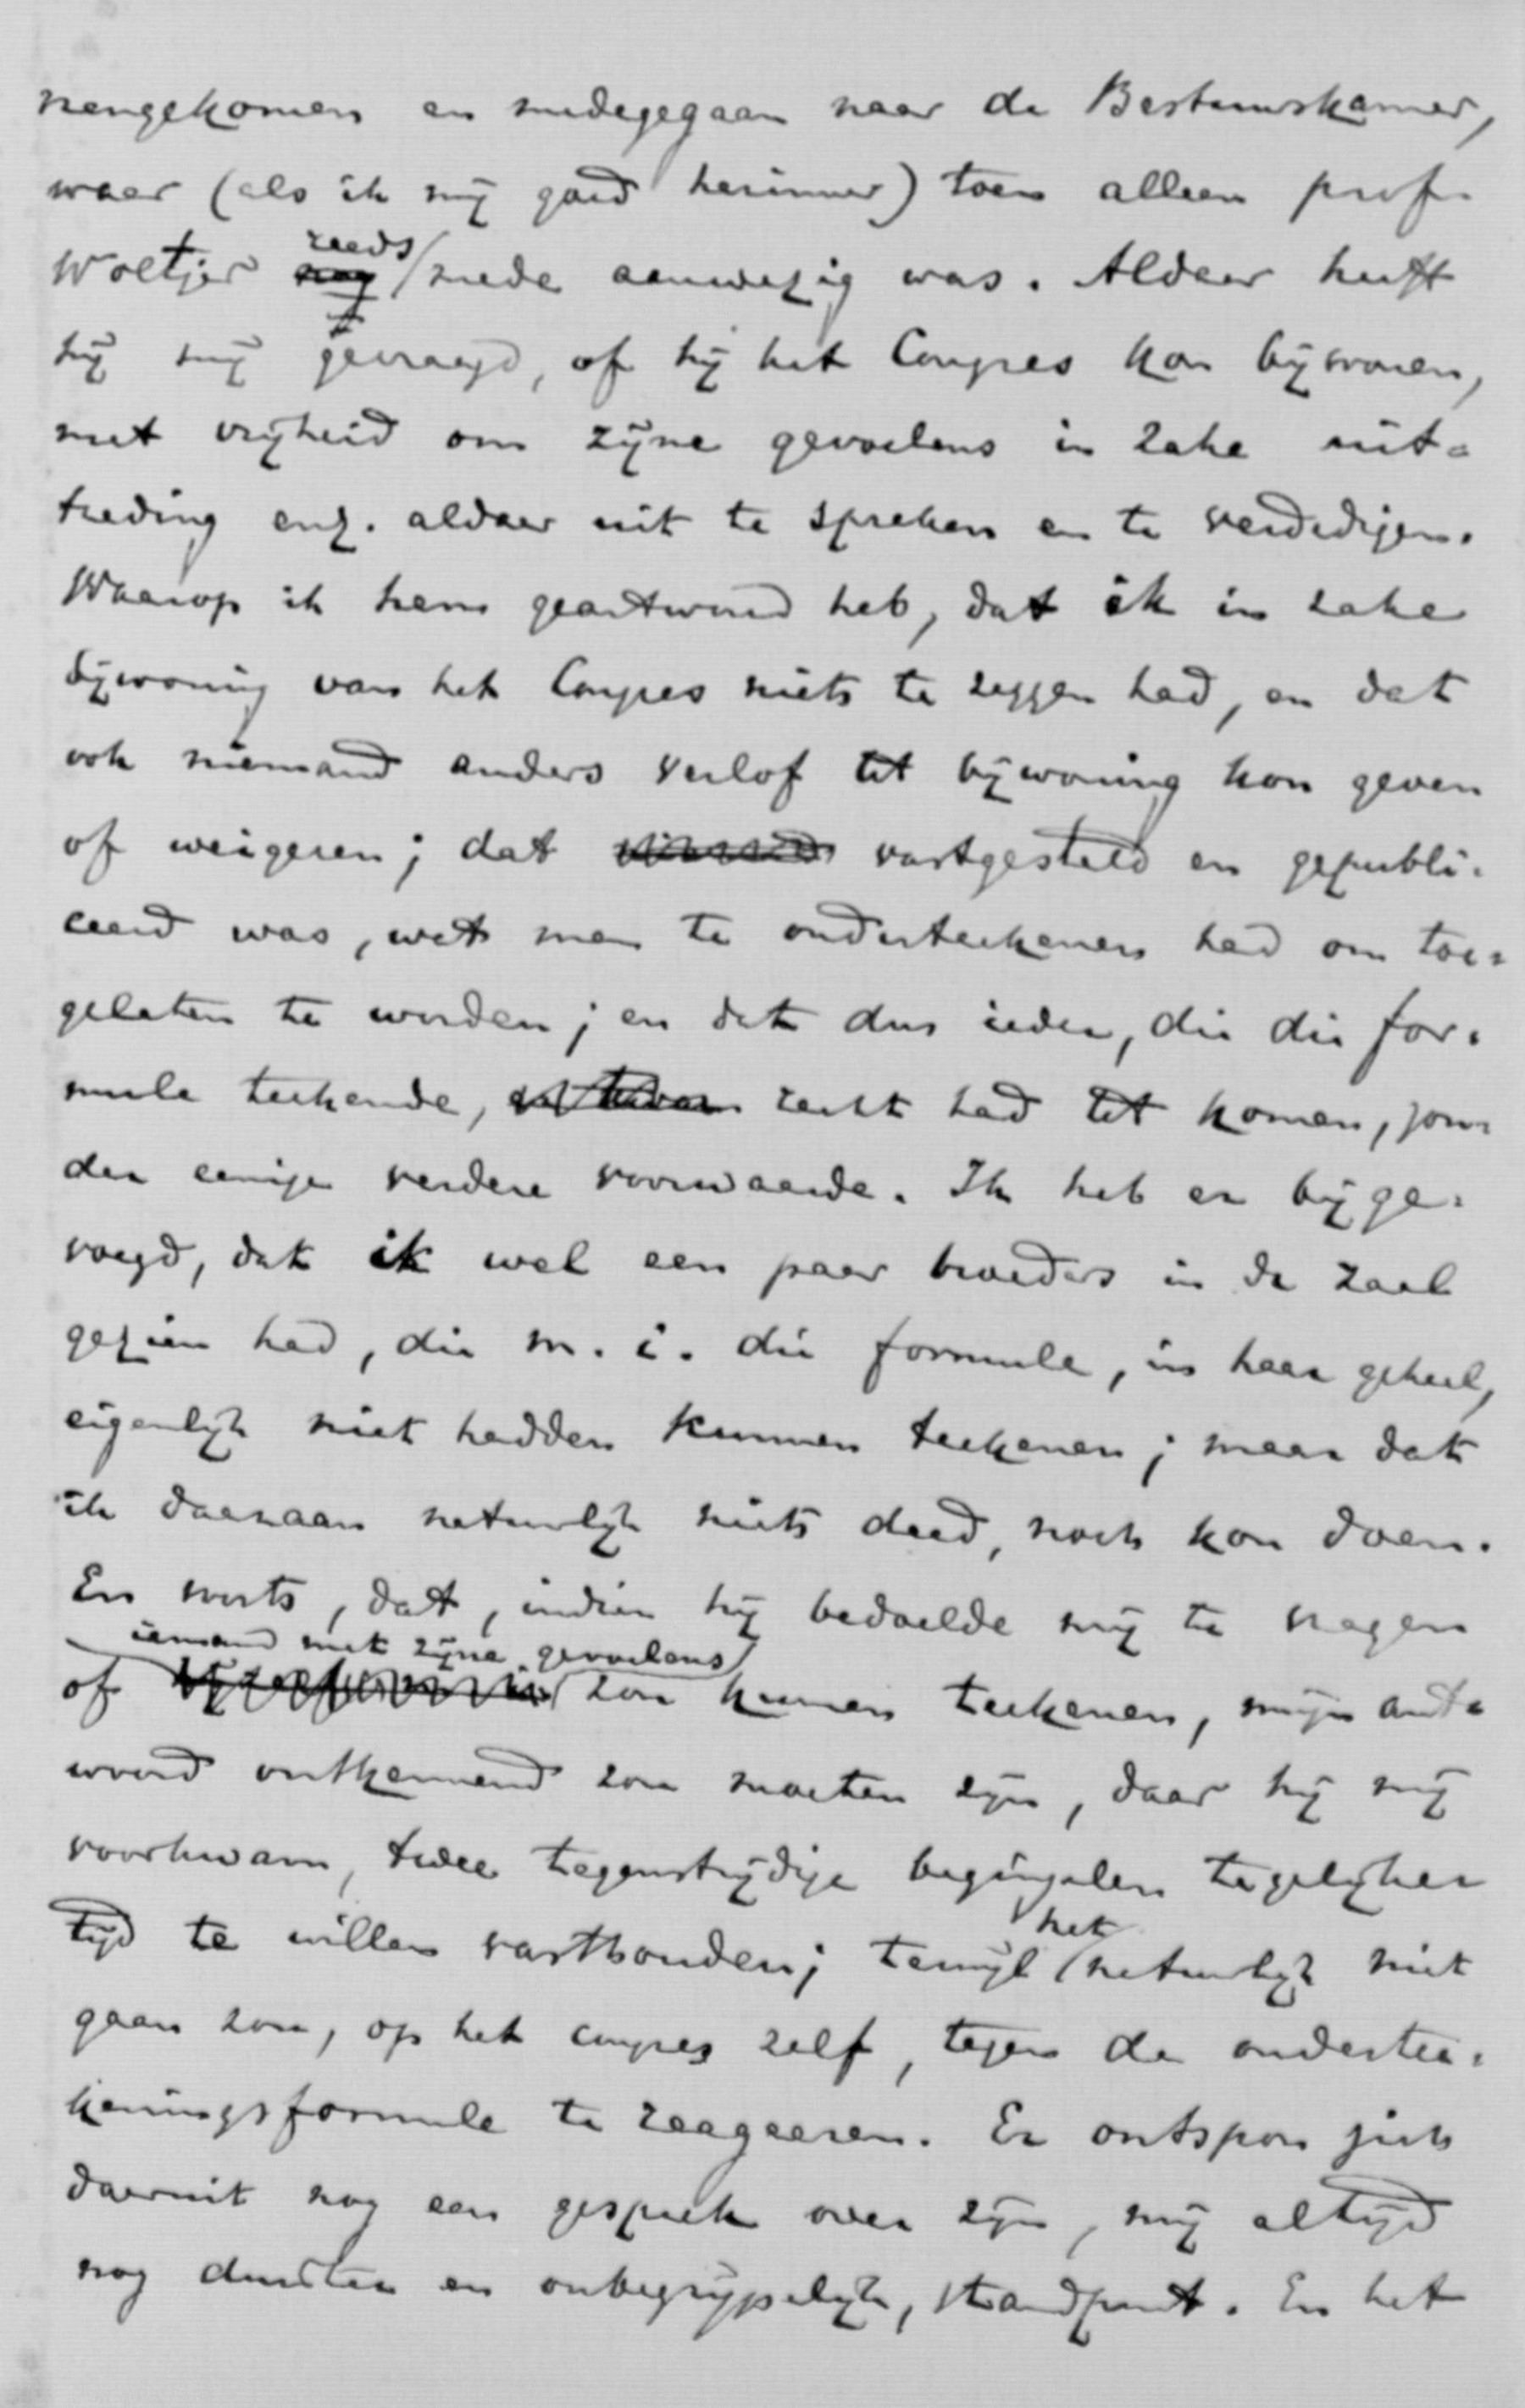 nengekomen en medegegaan naar de Bestuurskamer,
waar (als ik mij goed herinner) toen alleen prof.
Woltjer nog reeds mede aanwezig was. Aldaar heeft
hij mij gevraagd, of hij het Congres kon bijwonen,
met vrijheid om zijne gevoelens in zake uit=
treding enz. aldaar uit te spreken en te verdedigen.
Waarop ik hem geantwoord heb, dat ik in zake
bijwoning van het Congres niets te zeggen had, en dat
ook niemand anders verlof tot bijwoning kon geven
of weigeren; dat vastgesteld en gepubli=
ceerd was, wat men te onderteekenen had om toe=
gelaten te worden; en dat dus ieder, die die for=
mule teekende, recht had tot komen, zon=
der eenige verdere voorwaarde. Ik heb er bijge=
voegd, dat ik wel een paar broeders in de zaal
gezien had, die m. i. die formule, in haar geheel,
eigenlijk niet hadden kunnen teekenen; maar dat
ik daaraan natuurlijk niets deed, noch kon doen.
En voorts, dat, indien hij bedoelde mij te vragen
iemand met zijne gevoelens
of zou kunnen teekenen, mijn ant=
woord ontkennend zou moeten zijn, daar hij mij
voorkwam, twee tegenstrijdige beginselen tegelijker
tijd te willen vasthouden; terwijl het natuurlijk niet
gaan zou, op het congres zelf, tegen de ondertee=
keningsformule te reageeren. Er ontspon zich
daaruit nog een gesprek over zijn, mij altijd
nog duister en onbegrijpelijk, standpunt. En het